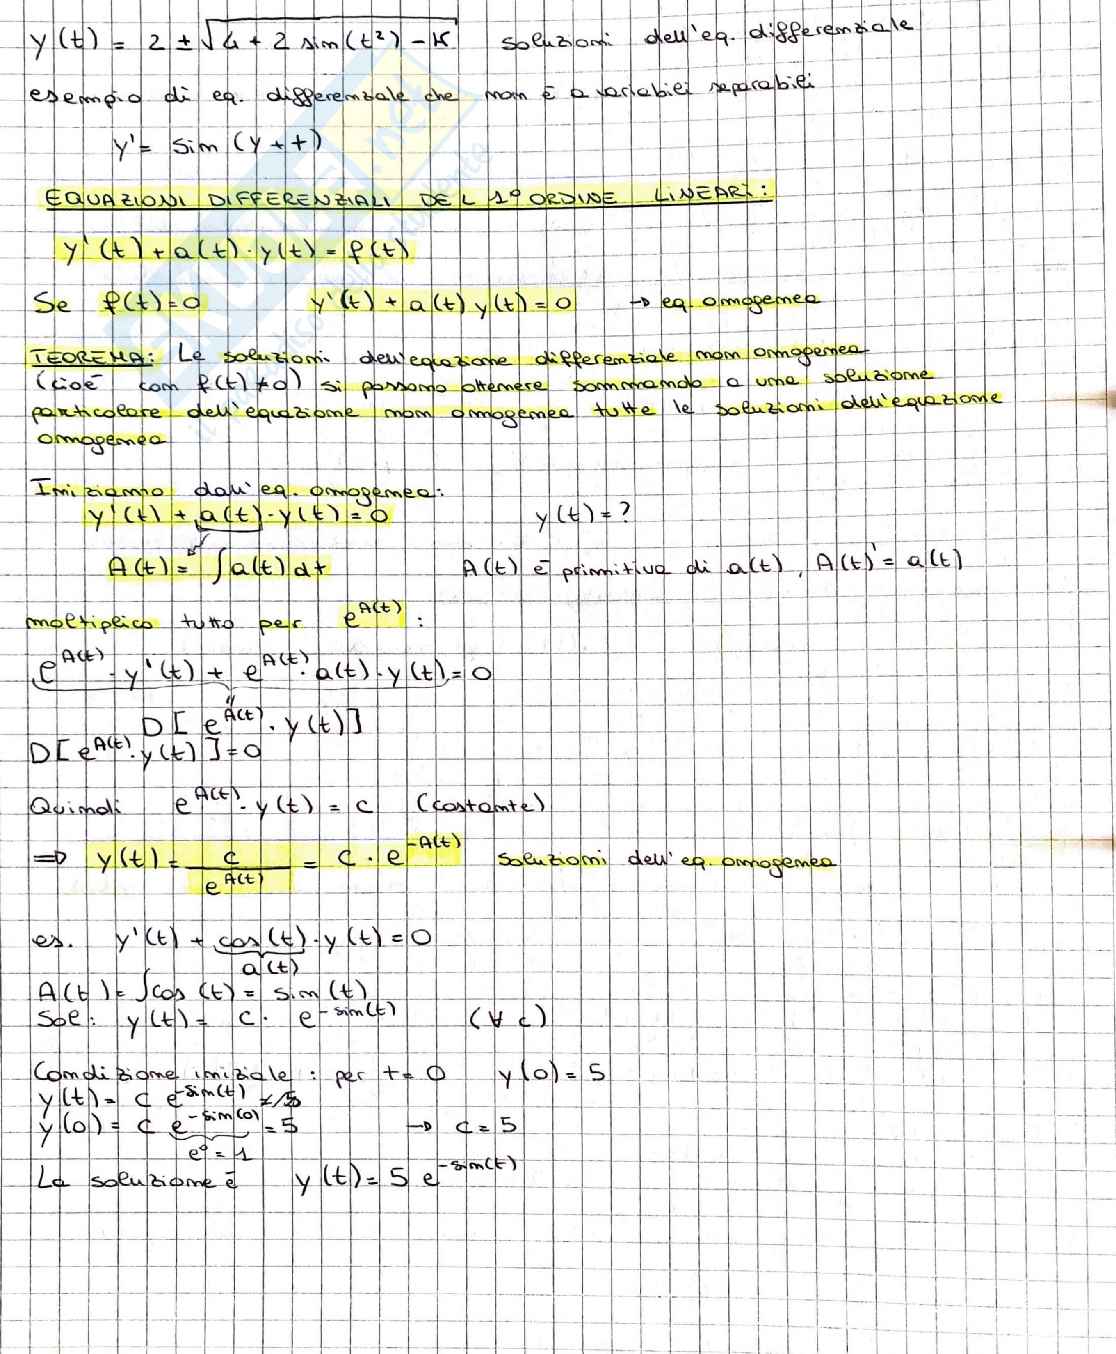 y(t) = 2 ± √(4 + 2 sin(t²) - K) soluzioni dell'eq. differenziale
esempio di eq. differenziale che non è a variabili separabili
y' = sin (y + t)
EQUAZIONI DIFFERENZIALI DEL 1° ORDINE LINEARI:
y'(t) + a(t) · y(t) = f(t)
Se f(t) = 0 y'(t) + a(t) y(t) = 0 → eq. omogenea
TEOREMA: Le soluzioni dell'equazione differenziale non omogenea
(cioè con f(t) ≠ 0) si possono ottenere sommando a una soluzione
particolare dell'equazione non omogenea tutte le soluzioni dell'equazione
omogenea
Iniziamo dall'eq. omogenea:
y'(t) + a(t) · y(t) = 0 y(t) = ?
A(t) = ∫ a(t) dt A(t) è primitiva di a(t), A(t)' = a(t)
moltiplico tutto per e^A(t) :
e^A(t) · y'(t) + e^A(t) · a(t) · y(t) = 0
"
D [ e^A(t) · y(t) ]
D [ e^A(t) · y(t) ] = 0
Quindi e^A(t) · y(t) = c (costante)
⇒ y(t) = c / e^A(t) = c · e^-A(t) soluzioni dell'eq. omogenea
es. y'(t) + cos(t) · y(t) = 0
a(t)
A(t) = ∫ cos (t) = sin (t)
Sol: y(t) = c · e^-sin(t) (∀ c)
Condizione iniziale : per t = 0 y(0) = 5
y(t) = c e^-sin(t)
y(0) = c e^-sin(0) = 5 → c = 5
e^0 = 1
La soluzione è y(t) = 5 e^-sin(t)